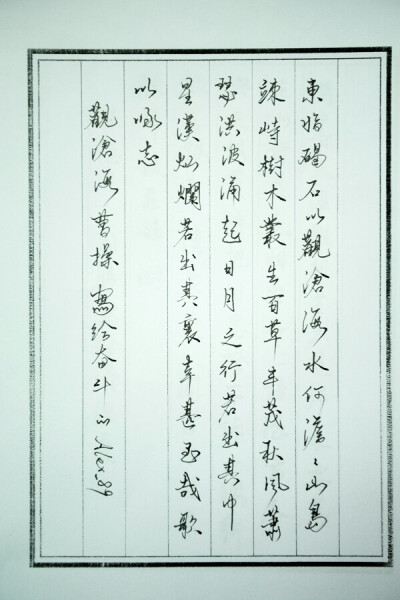 東臨碣石以觀滄海水何澹々山島
竦峙樹木叢生百草丰茂秋風蕭
瑟洪波涌起日月之行若出其中
星漢灿爛若出其裏幸甚至哉歌
以咏志
觀滄海 曹操 寫给奋斗的Alex.89